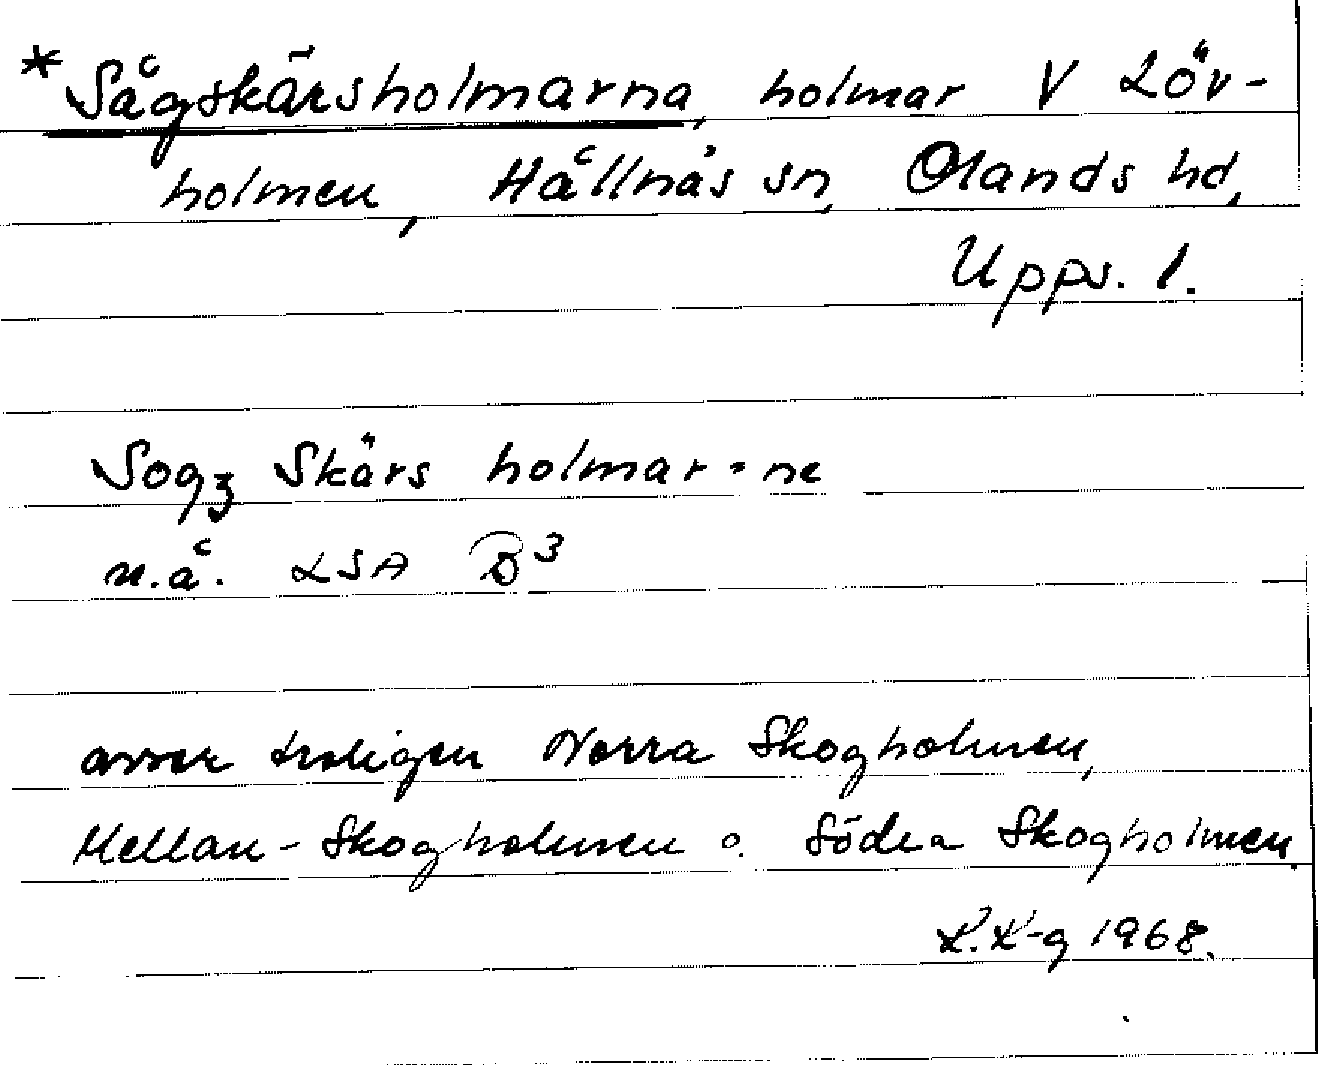 *Sågskärsholmarna, holmar V Löv-
holmen, Hållnäs sn, Olands hd,
Upps. l.
Sogz Skärs holmar=ne
n.å. LSA B3
avser troligen Norra Skogholmen,
Mellan-Skogholmen o. Södra Skogholmen.
1968.